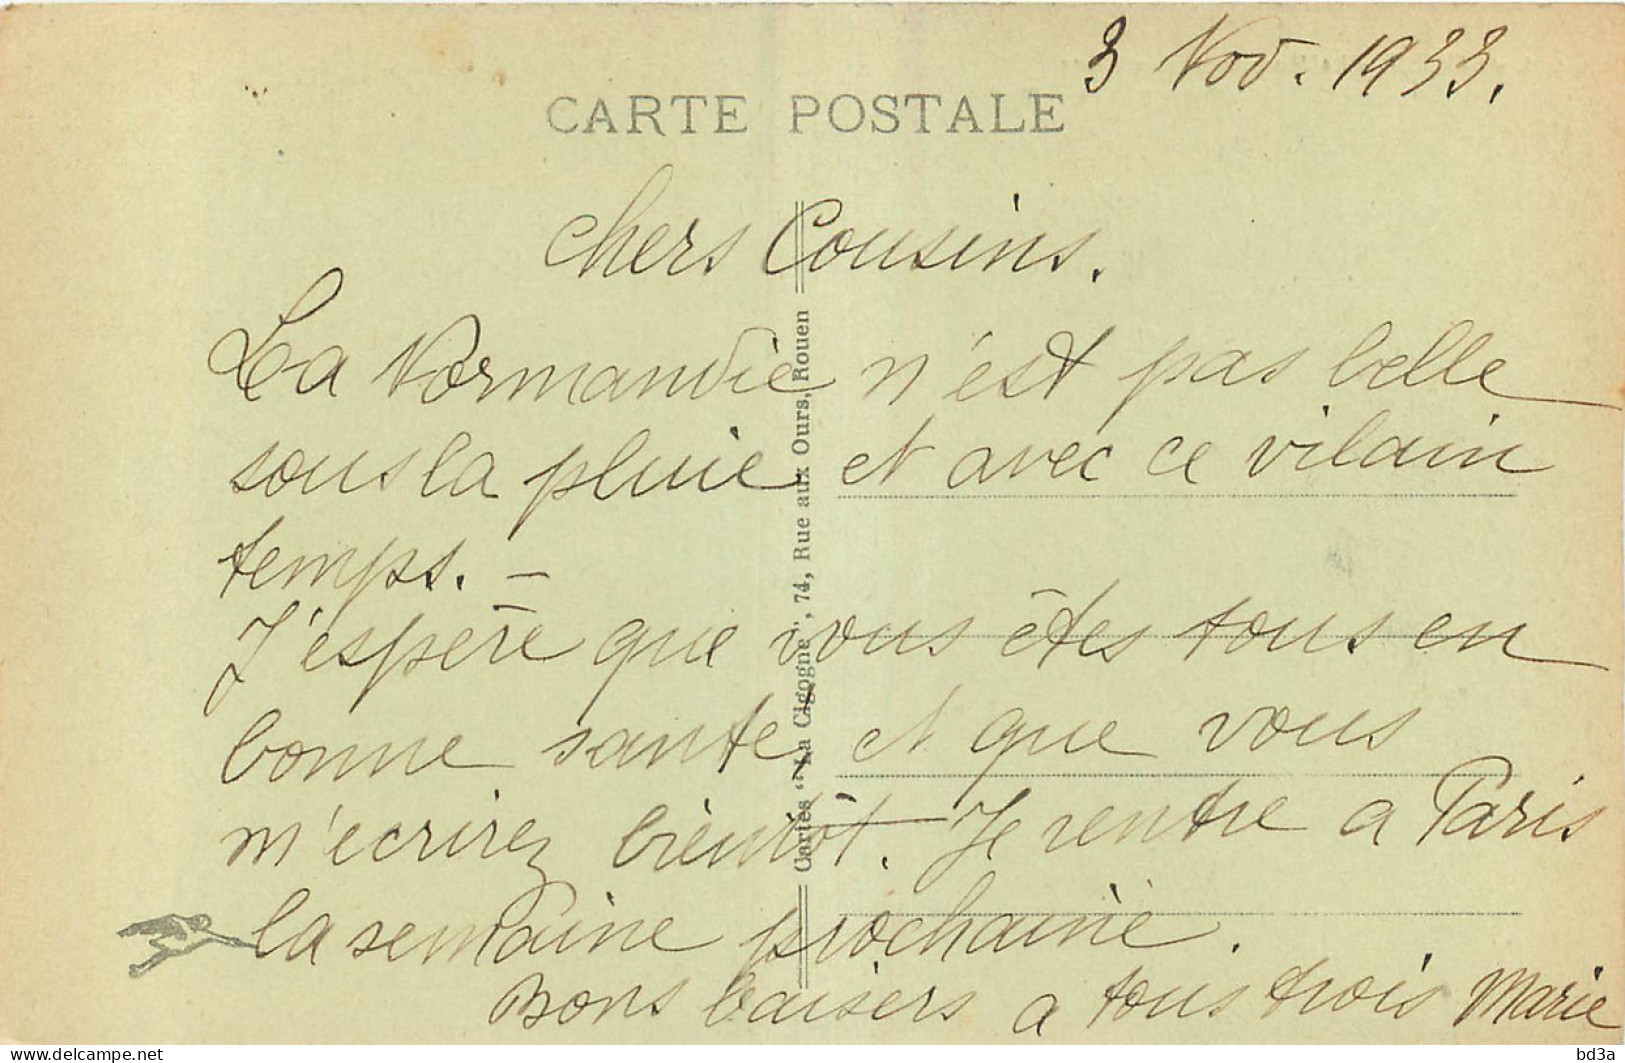 3 Nov. 1933.
CARTE POSTALE
chers Cousins.
La Normandie n'est pas belle
sous la pluie et avec ce vilain
temps. –
J'espère que vous êtes tous en
bonne santé et que vous
m'ecrirez bientôt. Je rentre a Paris
la semaine prochaine.
Bons baisers a tous trois Marie
Cartes "La Cigogne", 74, Rue aux Ours, Rouen
bd3a